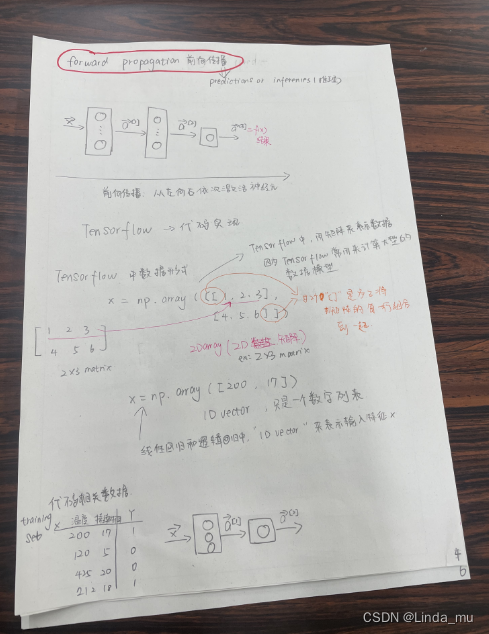 forward propagation 前向传播
predictions or inferences (推理)
x⃗ → a⃗[1] → a⃗[2] → a⃗[3] = f(x)
前向传播: 从左向右依次激活神经元
Tensorflow → 代码实现
Tensorflow 中, 用矩阵来表示数据
因为 Tensorflow 常用来计算大型的
数据模型
Tensorflow 中数据形式
x = np.array ([[1, 2, 3],
[4, 5, 6]])
1 2 3
4 5 6
2x3 matrix
2D array (2D
ex: 2x3 matrix
x = np.array ([200, 17])
1D vector, 只是一个数字列表
线性回归和逻辑回归中, "1D vector" 来表示输入特征 x
training
set
x 温度 Y
200 17 1
120 5 0
425 20 0
212 18 1
x⃗ → a⃗[1] → a⃗[2]
4
6
CSDN @Linda_mu